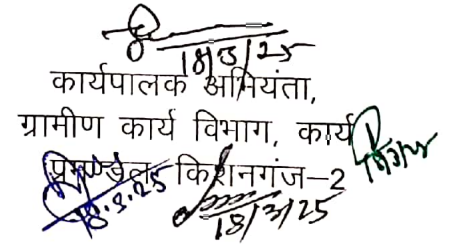 18/3/25
कार्यपालक अभियंता,
ग्रामीण कार्य विभाग, कार्य
प्रमण्डल, किशनगंज-2
18.3.25
18/3/25